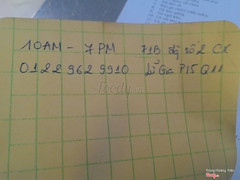 10AM - 7PM 71B Đg số 2 CX
0122 962 9910 Lữ Gia P15 Q11
Foody